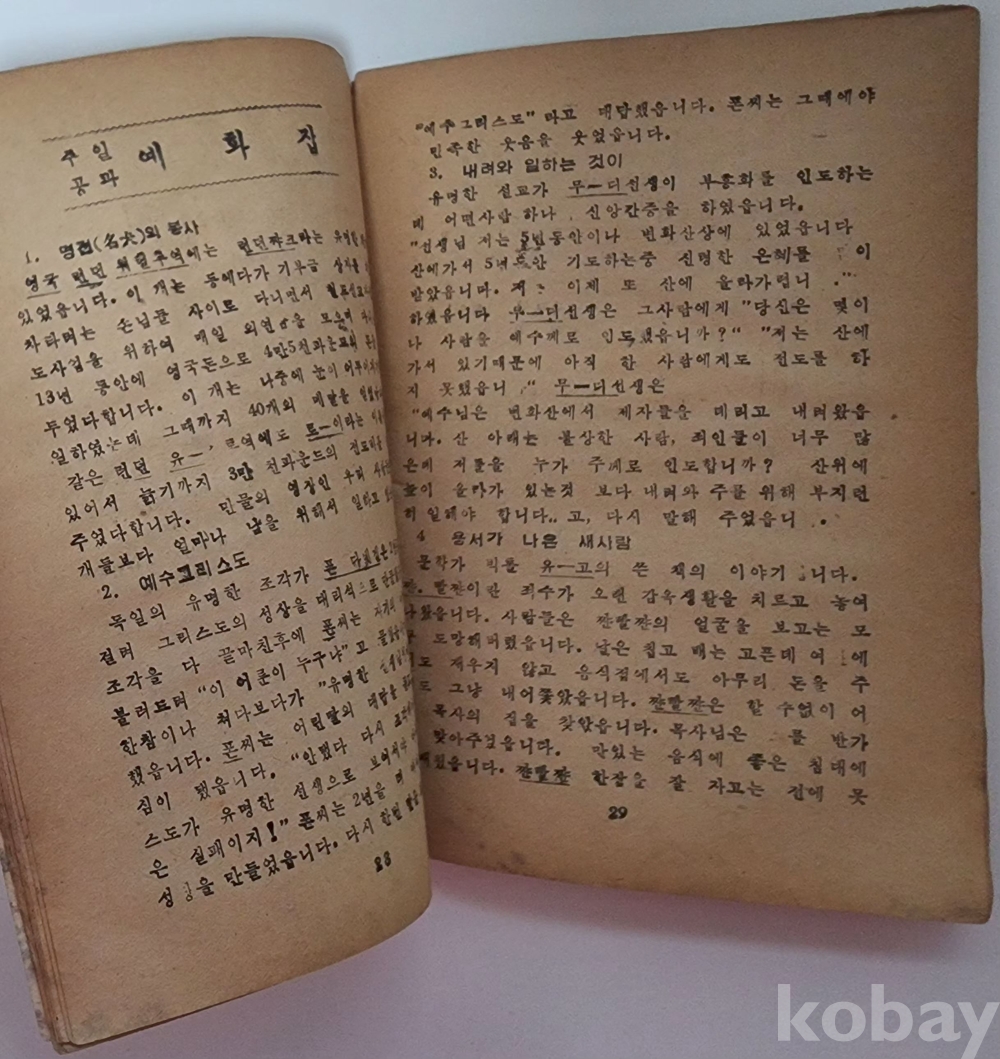 주일
공과 예 화 집
1. 명견(名犬)의 봉사
영국 런던 워털루역에는 런던짜크라는 유명한
있었읍니다. 이 개는 등에다가 기부금 상자를
차타려는 손님들 사이로 다니면서 철도선교
도사업을 위하여 매일 의연금을 모아
13년 동안에 영국돈으로 4만5천파운드
두었다합니다. 이 개는 나중에 눈이 어두
일하였는데 그때까지 40개의 메달을
같은 런던 로역에도 토ー이라는
있어서 늙기까지 3만 천파운드의 전도비를
주었다합니다. 만물의 영장인 우리
개들보다 얼마나 남을 위해서 일하고
2. 예수그리스도
독일의 유명한 조각가 폰 은
걸려 그리스도의 성상을 대리석으로
조각을 다 끝마친후에 폰씨는 자기의
불러드려 “이 어른이 누구냐”고
한참이나 쳐다보다가 “유명한 선생님
했읍니다. 폰씨는 어린딸의 대답을
심이 됐읍니다. “안됐다 다시
스도가 유명한 선생으로 보여서야
은 실패이지!” 폰씨는 2년을 더
성상을 만들었읍니다. 다시 한번 딸을
28
“예수그리스도” 라고 대답했읍니다. 폰씨는 그때에야
만족한 웃음을 웃었읍니다.
3. 내려와 일하는 것이
유명한 설교가 무ー디선생이 부흥회를 인도하는
데 어떤사람 하나 신앙간증을 하였읍니다.
“선생님 저는 5년동안이나 변화산상에 있었읍니다
산에가서 5년동안 기도하는중 신령한 은혜를 이
받았읍니다. 이제 또 산에 올라가렵니 .”
하였읍니다 무ー디선생은 그사람에게 “당신은 몇이
나 사람을 예수께로 인도했읍니까?“ ”저는 산에
가서 있기때문에 아직 한 사람에게도 전도를 하
지 못했읍니 “ 무ー디선생은
“예수님은 변화산에서 제자들을 데리고 내려왔읍
니다. 산 아래는 불상한 사람, 죄인들이 너무 많
은데 저들을 누가 주께로 인도합니까? 산위에
높이 올라가 있는것 보다 내려와 주를 위해 부지런
히 일해야 합니다.. 고, 다시 말해 주었읍니 .
4 용서가 나은 새사람
문학가 빅톨 유ー고의 쓴 책의 이야기 니다.
짠.발짠이란 죄수가 오랜 감옥생활을 치르고 놓여
나왔읍니다. 사람들은 짠발짠의 얼굴을 보고는 모
도망해버렸읍니다. 날은 칩고 배는 고픈데 여 에
도 재우지 않고 음식집에서도 아무리 돈을 주
도 그냥 내어쫓았읍니다. 쨘발쨘은 할 수없이 어
목사의 집을 찾았읍니다. 목사님은 를 반가
맞아주었읍니다. 맛있는 음식에 좋은 침대에
읍니다. 쨘발쨘 한잠을 잘 자고는 전에 못
29
kobay